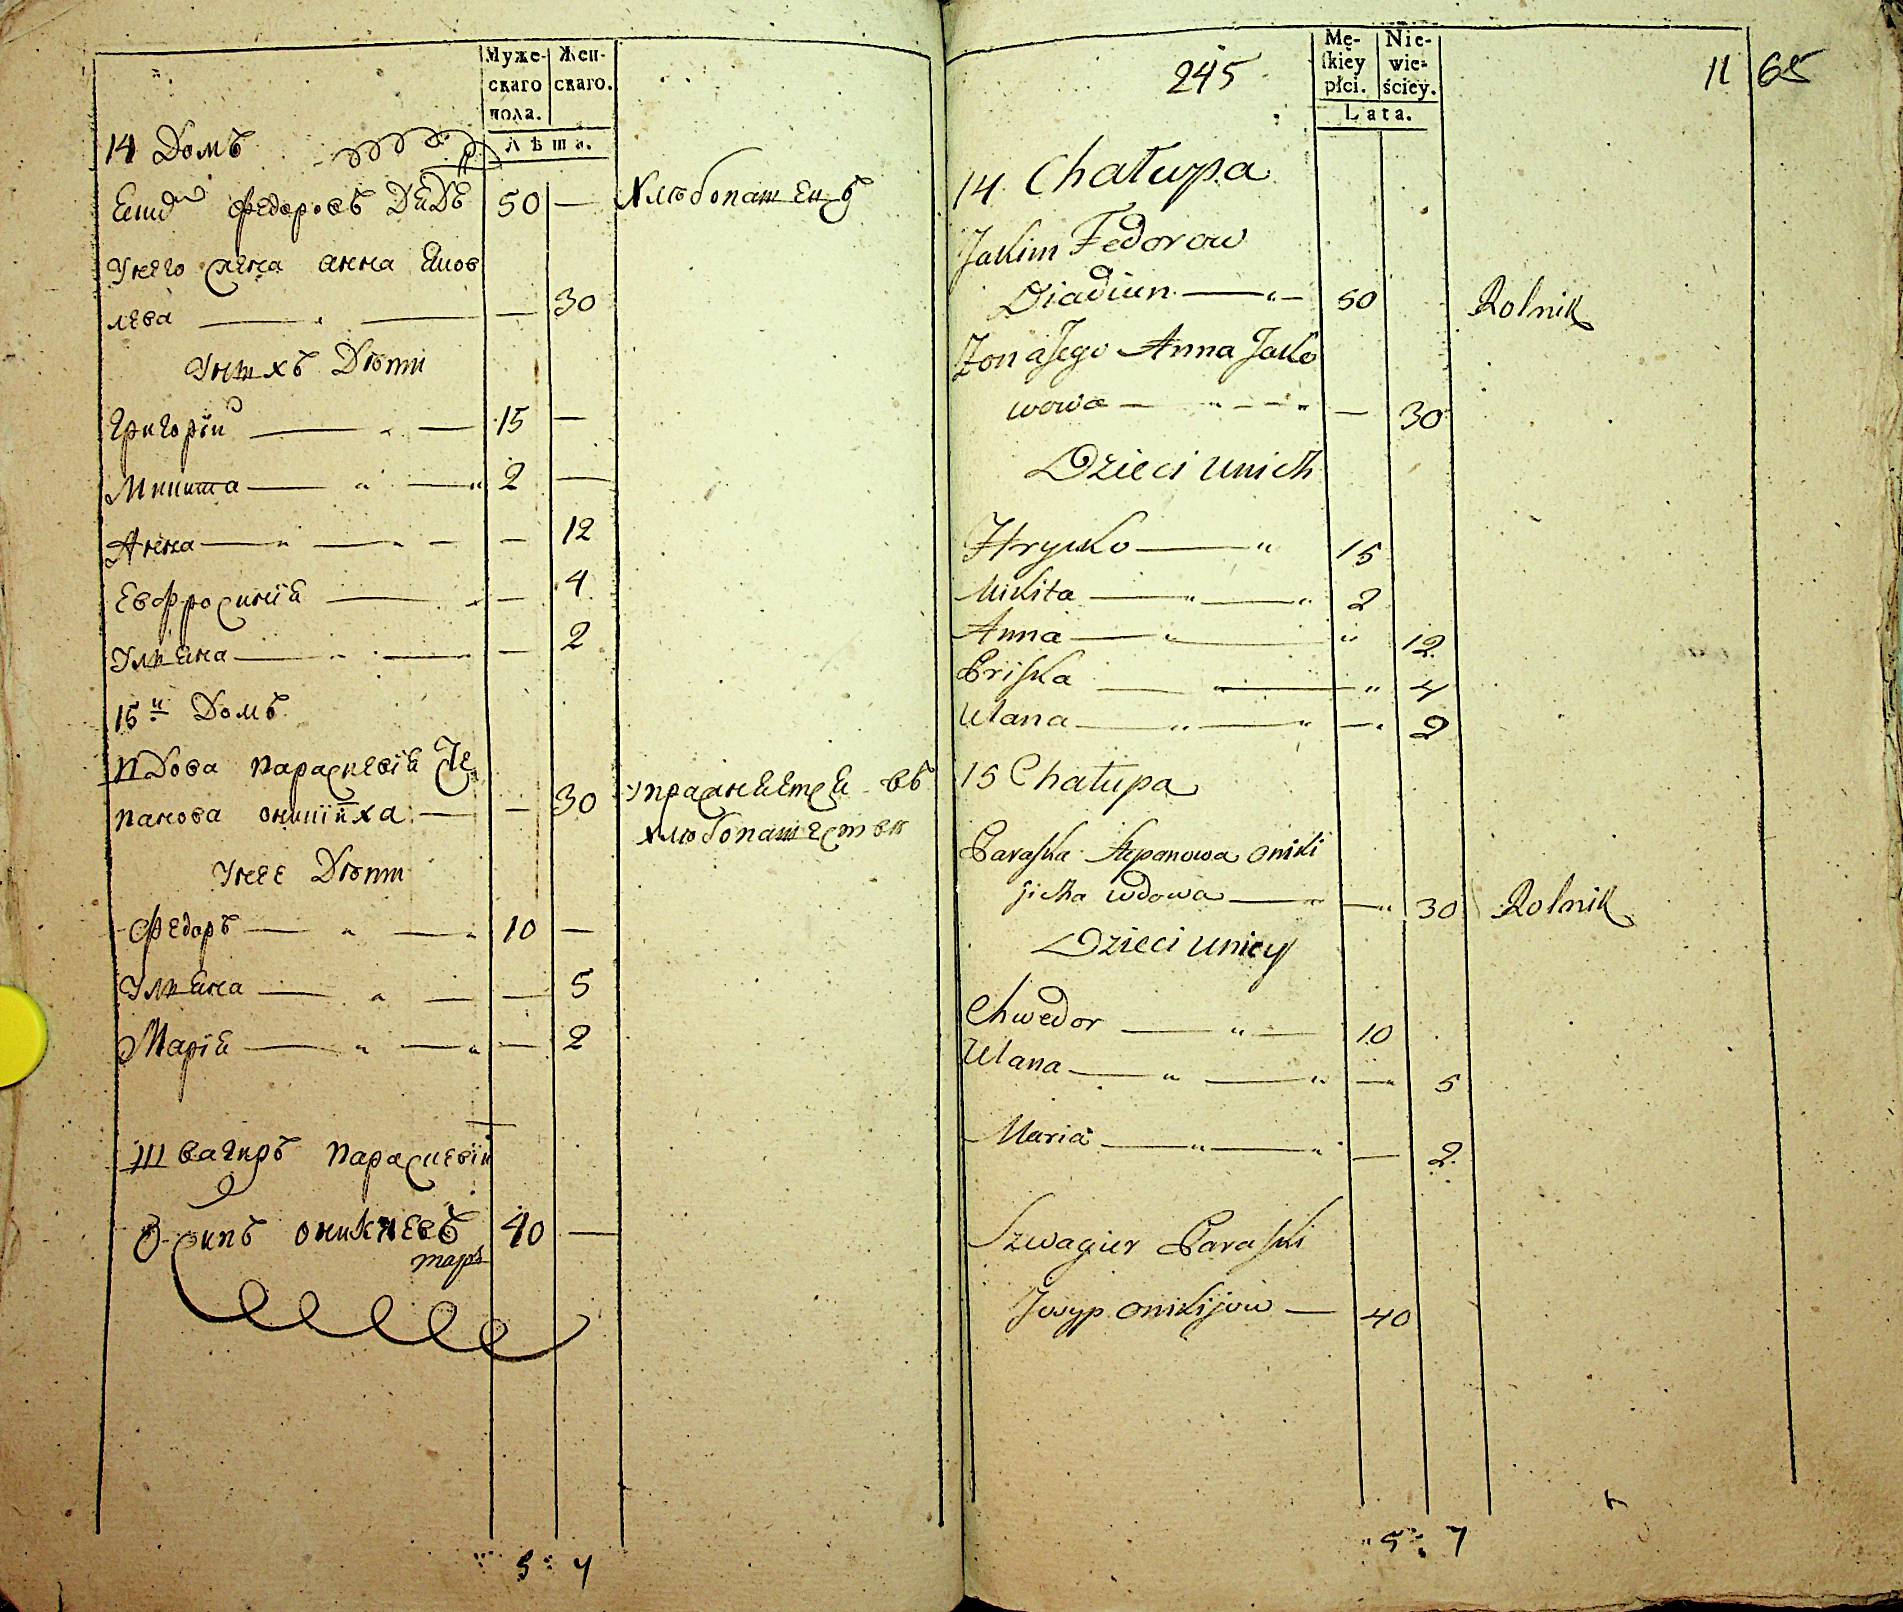 Муже-
скаго
пола.
Жен-
скаго.
Лѣта.
14 Домъ
Федоровъ 50 — Хлѣбопашецъ
Унего жена Анна Яков
лева — — 30
Унихъ Дѣти
Григорій — 15 —
Микита — 2 —
Анна — — 12
Евфросинія — — 4
Уліяна — — 2
15й Домъ
Вдова Параскевія Сте
панова — — 30 упражняется въ
хлѣбопашествѣ
Унее Дѣти
Федоръ — 10 —
Уліяна — — 5
Марія — — 2
Швагиръ Параскевіи
Осипъ 40 —
5 : 7
245
11 65
Mę-
skiey
płci.
Nie-
wie-
ściey.
Lata.
14 Chałupa
Jakim Fedorow
Diadiun — 50 Rolnik
Żona Jego Anna Jako
wowa — — 30
Dzieci unich
Hryćko — 15
Mikita — 2
Anna — 12
Priska — 4
Ulana — 2
15 Chałupa
Paraska Stepanowa Oniki
jicha wdowa — — 30 Rolnik
Dzieci uniey
Chwedor — 10
Ulana — — 5
Maria — — 2
Szwagier Paraski
Josyp Onikijow — 40
5 : 7